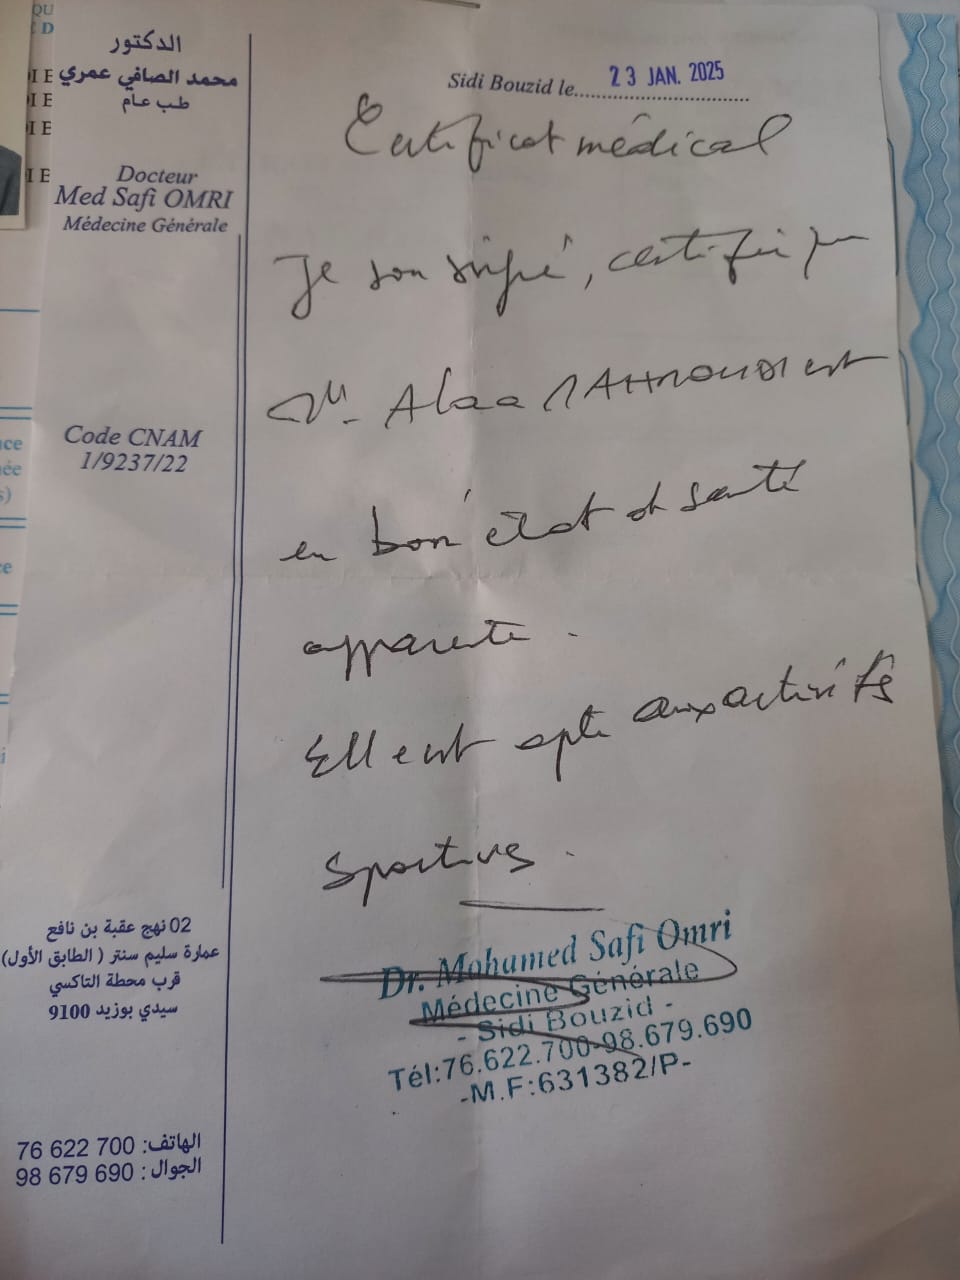 الدكتور
محمد الصافي عمري
طب عام
Docteur
Med Safi OMRI
Médecine Générale
Code CNAM
1/9237/22
02 نهج عقبة بن نافع
عمارة سليم سنتر ( الطابق الأول)
قرب محطة التاكسي
سيدي بوزيد 9100
الهاتف: 76 622 700
الجوال : 98 679 690
Sidi Bouzid le 23 JAN. 2025
Certificat médical
Je sousigné, certifie que
Alaa est
en bon état de santé
apparente.
Elle est apte aux activités
Sportives.
Dr. Mohamed Safi Omri
Médecine Générale
- Sidi Bouzid -
Tél:76.622.700-98.679.690
-M.F:631382/P-